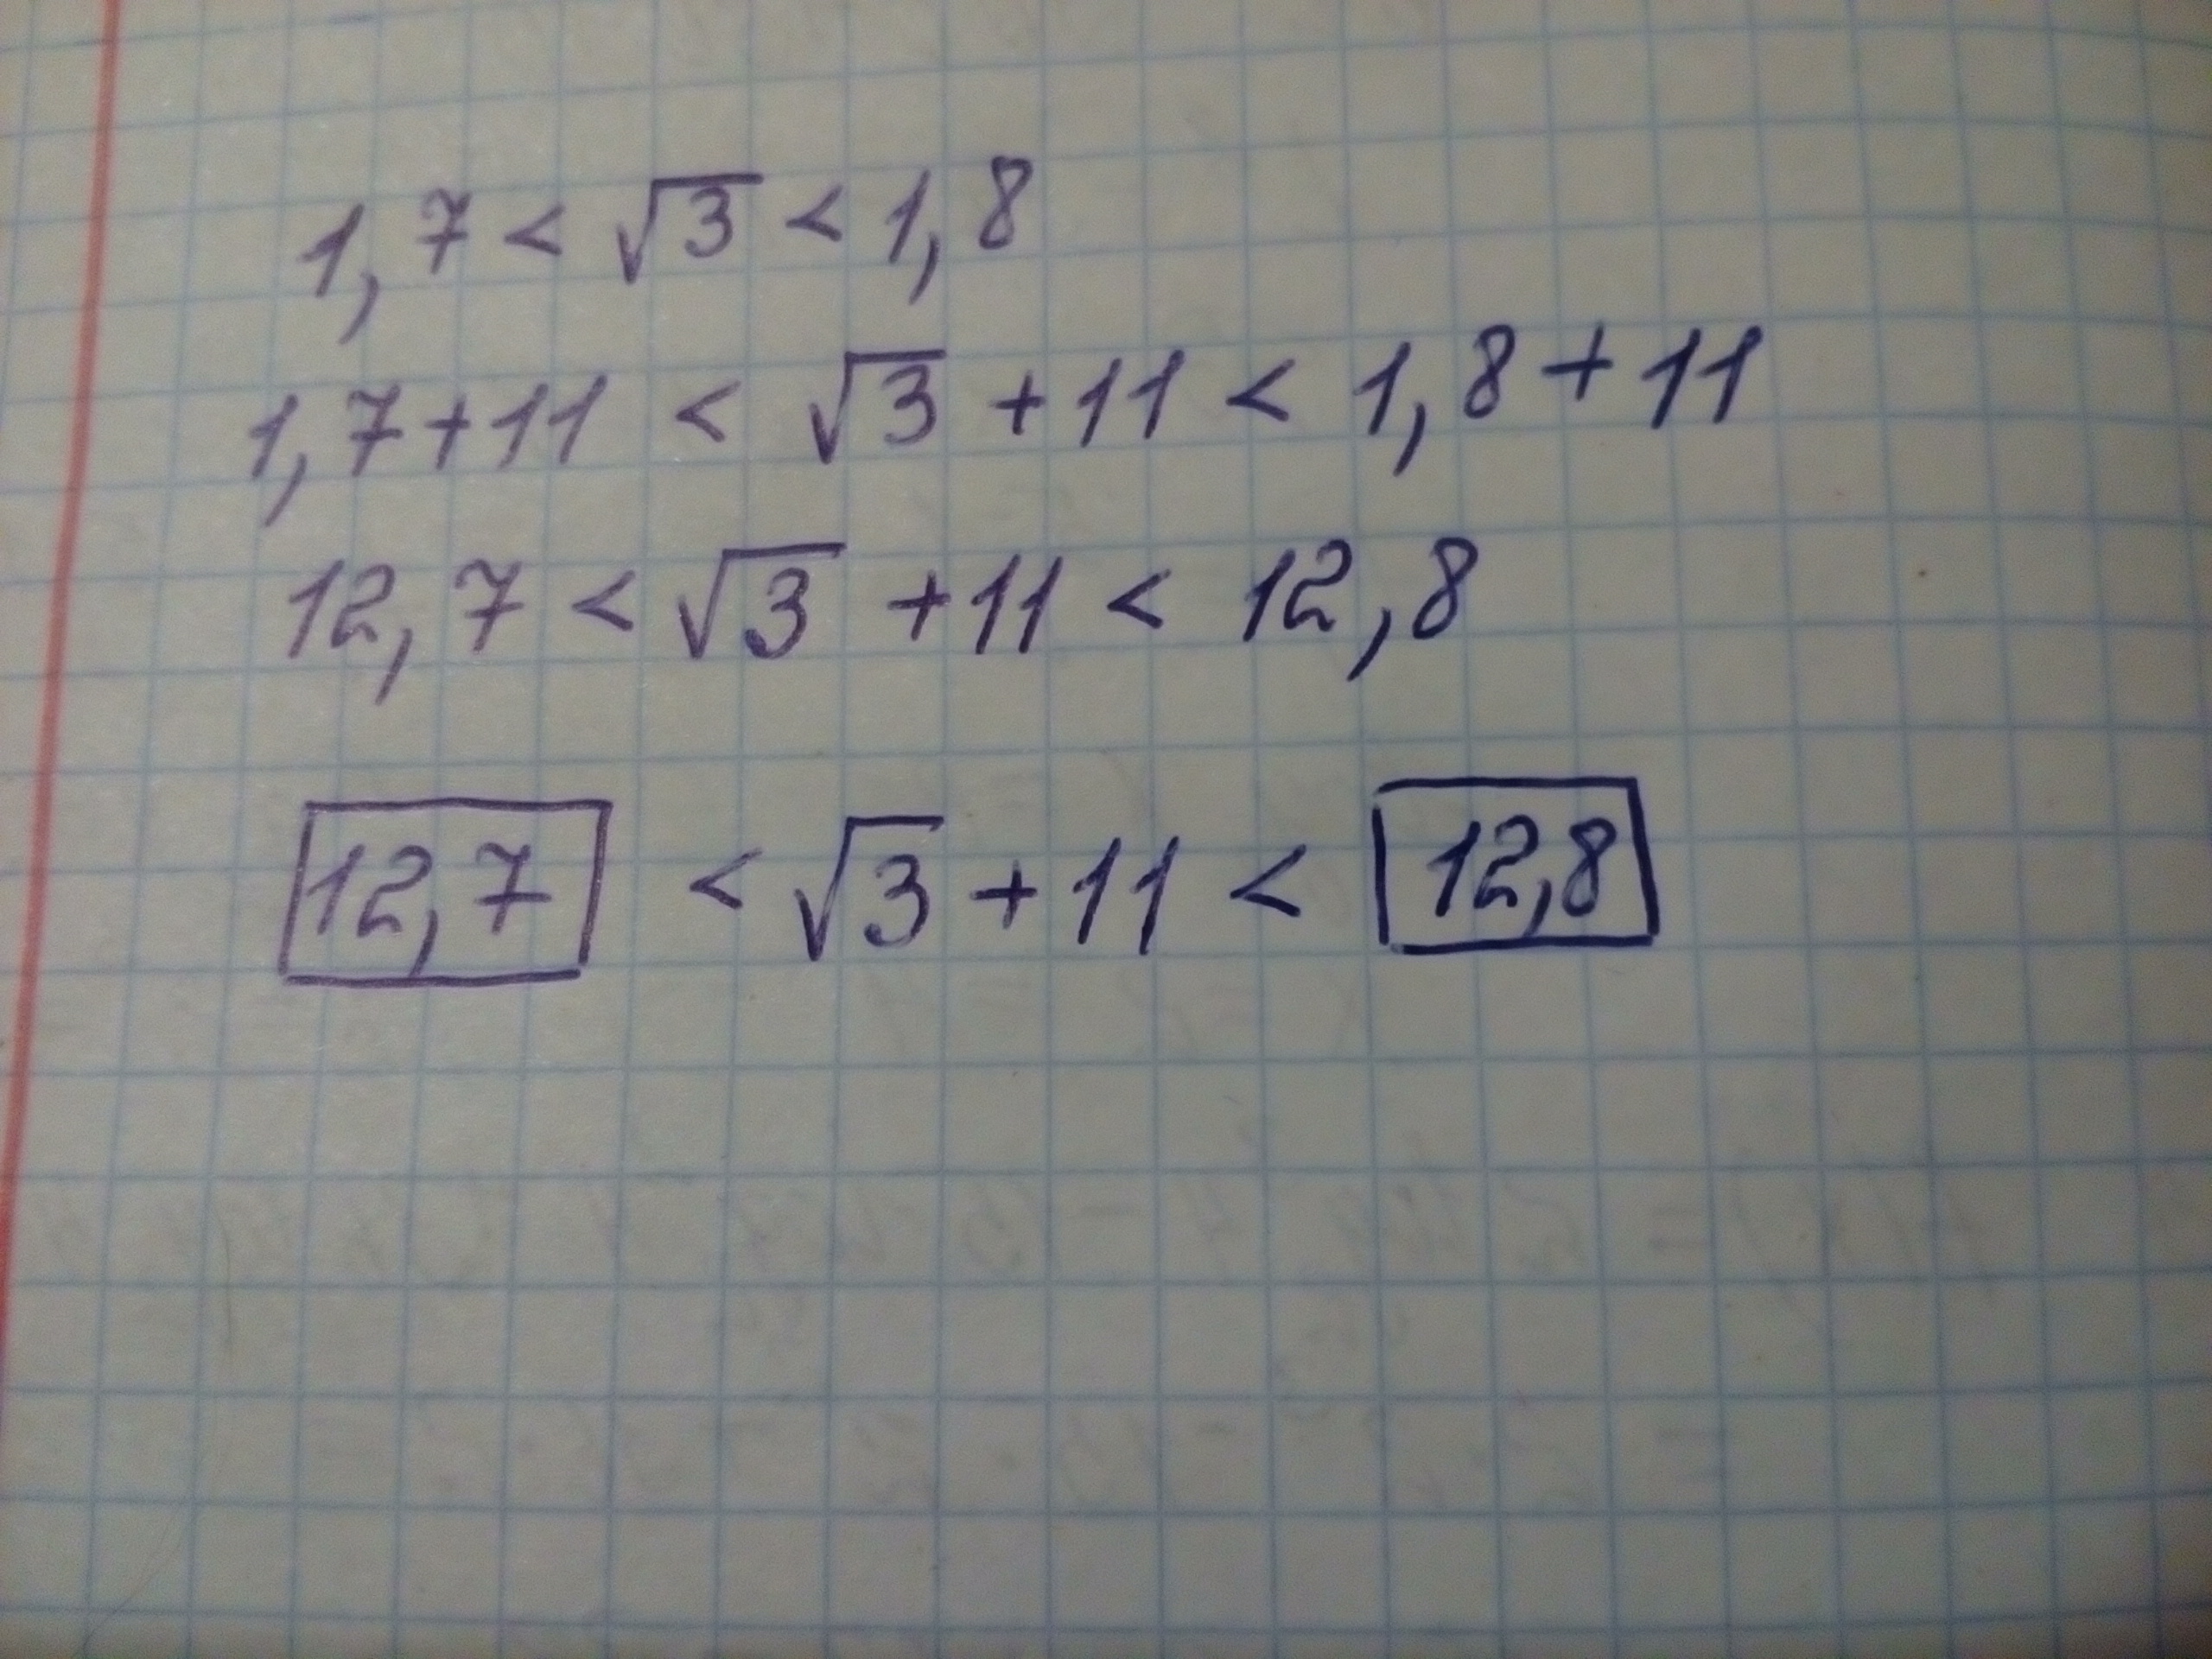 1,7 < √3 < 1,8
1,7+11 < √3 + 11 < 1,8 + 11
12,7 < √3 + 11 < 12,8
12,7 < √3 + 11 < 12,8